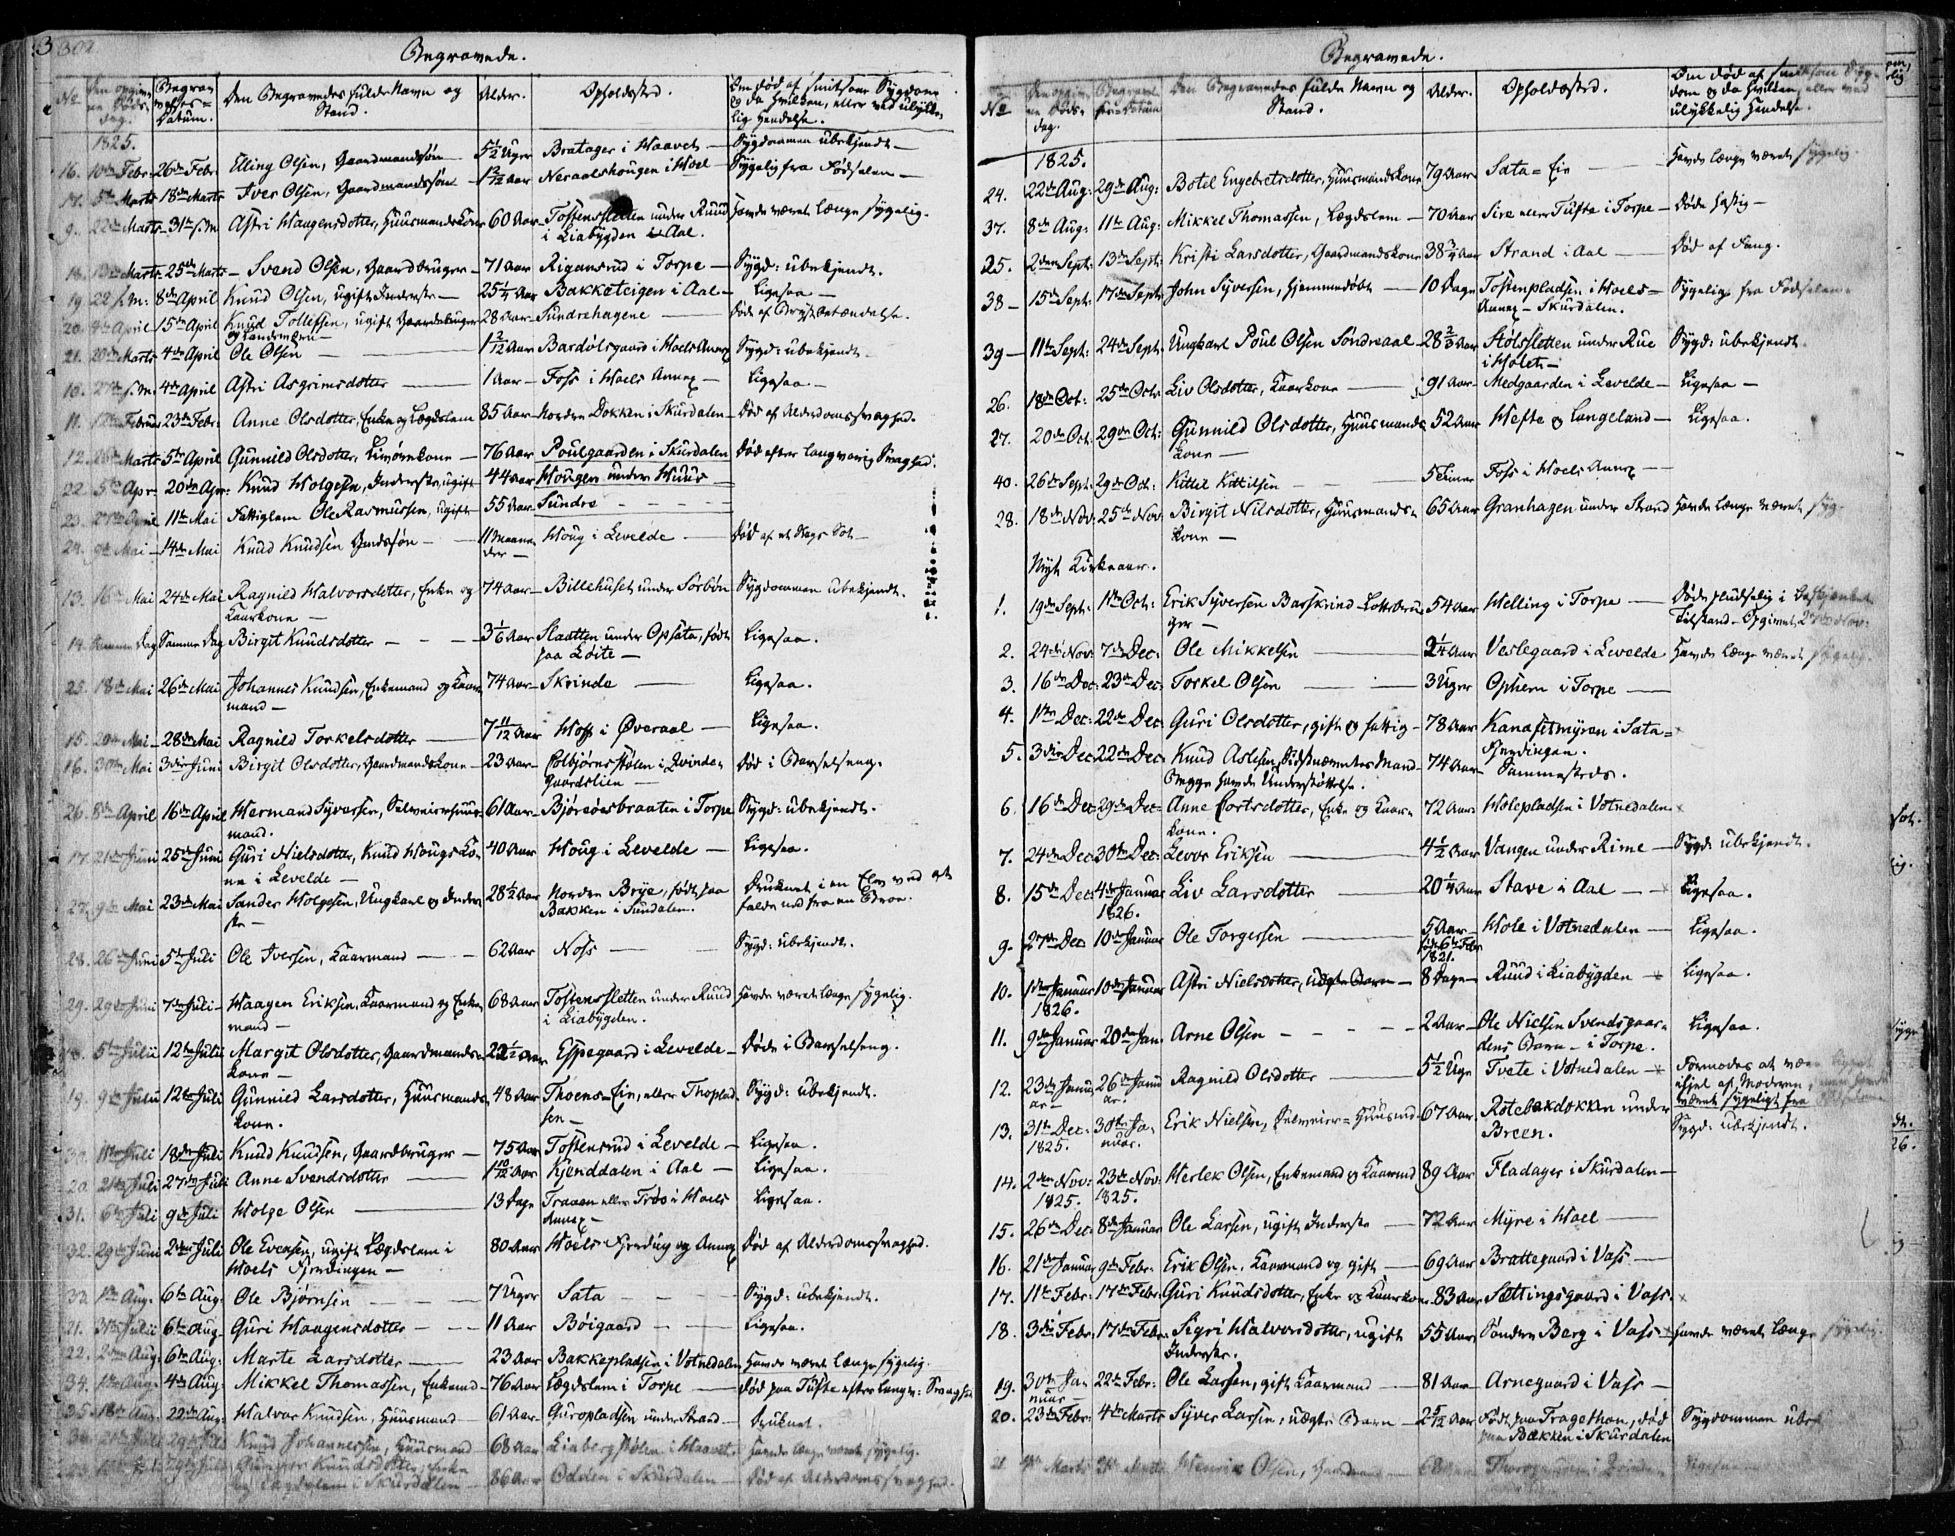 302
Begravede.
No
Den opgivne Døds-dag.
Begravelses-Datum.
Den Begravedes fulde Navn og Stand.
Alder.
Opholdssted.
Om død af smitsom Sygdom og da hvilken, eller ved ulykkelig Hændelse.
1825.
16. 10de Febr. 26de Febr. Elling Olsen, Gaardmandssøn — 5½ Uger Bratager i Haavet — Sygdommen ubekjendt —
17. 5te Marts 18de Marts Iver Olsen, Gaardmandssøn — 1 2/12 Aar Neraalshougen i Hoel — Sygelig fra Fødselen —
9. 22de Marts 31te s.M. Astri Haagensdotter, Huusmandskone 60 Aar Tostenssletten under Ruud Havde været længe sygelig.
i Liabygden Aal.
18. Marts 25de Marts — Svend Olsen, Gaardbruger — 71 Aar Rigansrud i Torpe — Sygd: ubekjendt.
19. 22 s.M: 8de April Knud Olsen, ugift Inderste — 25¼ Aar Bakketeigen i Aal — Ligesaa —
20. April 15de April Knud Tollefsen, ugift Gaardbruger 28 Aar Sundrehagene — Døde af Brystbetændelse.
og Landværn —
21. 20de Marts 4de April Ole Olsen — 1 2/12 Aar Bardølsgaard i Hoels Annex Sygd: ubekjendt.
10. 27de s.M. 4de April Astri Asgrimsdotter — 1 Aar — Foss i Hoels Annex — Ligesaa —
11. 12te Februar 23de Febr: Anne Olsdotter, Enke og Lægdslem 85 Aar Nordre Dokken i Skurdalen Død af Alderdomssvaghed.
12. 26de Marts 5te April Gunnild Olsdotter, kone — 76 Aar Poulgaarden i Skurdalen Død efter langvarig Svaghed.
22. 5te Apr 20de Apr: Knud Holgesen, Inderste, ugift 44 Aar Hougen under Huus —
23. April 11te Mai Fattiglem Ole Rasmussen, ugift 55 Aar Sundre — — —
24. 9de Mai 14de Mai Knud Knudsen — 11 Maaneder — Houg i Levelde — Død af et
13. 16de Mai 24de Mai Ragnild Halvorsdotter, Enke og 74 Aar Billehuset under Sørbøn Sygdommen ubekjendt.
Kaarkone —
14. Samme Dag Samme Dag Birgit Knudsdotter — — — 3 1/6 Aar Slaatten under Opsata, født Ligesaa.
paa Løite —
25. 18de Mai 26de Mai Johannes Knudsen, Enkemand og Kaar- 74 Aar Skrinde — Ligesaa.
mand —
15. 20de Mai 28de Mai Ragnild Torkelsdotter — 7 11/12 Aar Hoff i Øveraal — Ligesaa.
16. 30te Mai 3die Juni Birgit Olsdotter, Gaardmandskone — 23 Aar Stølen i Qvinde- Død i Barselseng.
gaardslien —
26. 8de April 16de April Hermand Syversen, Selveierhuus- 61 Aar Bjøreøesbraaten i Torpe Sygd: ubekjendt.
mand.
17. 21de Juni 25de Juni Guri Nielsdotter, Knud Hougs Ko- 40 Aar Houg i Levelde — Ligesaa.
ne i Levelde —
27. 9de Mai 23de Mai Sander Holgesen, Ungkarl og Inder- 28½ Aar Nordre Brye, født paa Druknet i en Elv ved at
ste — Bakken i Sundalen. falde ned fra en Broe.
28. 26de Juni 5te Juli Ole Iversen, Kaarmand — — 62 Aar Noss — — Sygd: ubekjendt.
29. 29de Juni 7de Juli — Haagen Eriksen, Kaarmand og Enke- 68 Aar Tostenssletten under Ruud Havde været længe sygelig.
mand — i Liabygden.
18. 5te Julii 12te Julii Margit Olsdotter, Gaardmands- 22½ Aar Espegaard i Levelde — Døde i Barselseng.
kone —
19. 9de Julii 12te Juli Gunnild Larsdotter, Huusmands- 48 Aar Thoens-Eie, eller Thoplad- Sygd: ubekjendt.
kone. sen —
30. 11te Juli 18de Juli Knud Knudsen, Gaardbruger — 75 Aar Tostensrud i Levelde — Ligesaa.
20. 21de Juli 27de Juli Anne Svendsdotter — 1 10/12 Aar Kjenddalen i Aal — Ligesaa.
31. 6te Juli 9de Juli Holge Olsen — 13 Dage Traaen eller Trøo i Hoels Ligesaa.
Annex —
32. 29de Juni 2den Juli Ole Evensen, ugift Lægdslem i 80 Aar Hoels Fjerding og Annex Død af Alderdomssvaghed.
Hoels Fjerdingen —
33. 1ste Aug: 6te Aug: Ole Bjørnsen — — — 7 Uger Sata — — — Sygd: ubekjendt.
21. 31te Julii 6te Aug Guri Haagensdotter — — — 11 Aar Bøigaard — — Ligesaa.
22. 2den Aug: 6te Aug: Marte Larsdotter — 23 Aar Bakkepladsen i Votnedalen Havde været længe sygelig.
34. 1ste Aug 4de Aug: Mikkel Thomassen, Enkemd — 76 Aar Lægdslem i Torpe — Død paa Tufte efter langv: Svaghed
35. 18de Aug: 22de Aug: Halvor Knudsen, Huusmand 61 Aar Guropladsen under Strand — Druknet.
36. Juli 29de Juli Knud Johannessen, Huusmand 68 Aar Liabergstølen i Haavet Havde længe været sygelig.
23. Knudsdotter, Enke 86 Aar Odden i Skurdalen — Død af Alderdomssvaghed.
og Lægdslem i Skurdalen —
Begravede.
No
Den opgivne Døds-dag.
Begravelses-Datum
Den Begravedes fulde Navn og Stand.
Alder.
Opholdssted.
Om død af smitsom Sygdom og da hvilken, eller ved ulykkelig Hændelse.
1825.
24. 22de Aug: 29de Aug: Botel Engebretsdotter, Huusmandskone 79 Aar Sata-Eie — Havde længe været sygelig.
37. 8de Aug: 11te Aug: Mikkel Thomassen, Lægdslem — 70 Aar Sire eller Tufte i Torpe — Døde hastig —
25. 2den Sept: 13de Sept: Kristi Larsdotter, Gaardmandskone 38¾ Aar Strand i Aal — Død af Fang.
38 — 15de Sept: 17de Sept: John Syversen, hjemmedøbt — 10 Dage Tostenpladsen i Hoels- Sygelig fra Fødselen.
Annex — Skurdalen.
39 — 11te Sept: 24de Sept: Ungkarl Poul Olsen Søndreaal 28⅔ Aar Stølssletten under Rue Sygd: ubekjendt.
i Holet —
26. 18de Oct: 25de Octr Liv Olsdotter, Kaarkone — 91 Aar Medgaarden i Levelde — Ligesaa —
27. 20de Oct: 29de Oct: Gunnild Olsdotter, Huusmands- 52 Aar Hefte og Langeland — Ligesaa.
kone —
40. 26de Sept: 29de Oct: Kittel Kittilsen — — 5 Timer Foss i Hoels Annex —
28. 18de Nov: 25de Nov: Birgit Nilsdotter, Huusmands- 65 Aar Granhagen under Strand Havde længe været syg.
kone —
Nyt Kirkeaar.
1. 19de Sept: 1ste Oct: Erik Syversen Barskrind — 54 Aar Helling i Torpe — Døde pludselig i beskjenket
ger — Tilstand — Opgivet 27de Nov:
2. 24de Nov: 7de Dec: Ole Mikkelsen — 2¼ Aar Veslegaard i Levelde Havde længe været sygelig.
3. 16de Dec: 23de Dec: Torkel Olsen — 3 Uger Ophem i Torpe —
4. 1ste Dec: 22de Dec: Guri Olsdotter, gift og fattig — 78 Aar Kanafetmyren i Sata-
Fjerdingen.
5. 3die Dec 22de Dec Knud Aslesen, Sidstnævntes Mand — 74 Aar — Sammesteds.
Begge havde Understøttelse.
6. 16de Dec 29de Dec: Anne Cortsdotter, Enke og Kaar- 72 Aar Holepladsen i Votnedalen
kone.
7. 24de Dec: 30te Dec: Levor Eriksen — 4½ Aar Vangen under Rime — Sygd: ubekjendt.
8. 15de Dec 4de Januar Liv Larsdotter 20¼ Aar Stave i Aal — — Ligesaa.
1826.
9. 27de Dec 10de Januar Ole Torgersen — 5 Aar — Hole i Votnedalen — Ligesaa.
født 6te Febr 1821.
10. 1ste Januar 10de Januar Astri Nielsdotter, uægte Barn — 8 Dage Ruud i Liabygden — Ligesaa.
1826.
11. 9de Januar 20de Jan: Arne Olsen — — — — 2 Aar Ole Nielsen Svendsgaar- Ligesaa.
dens Barn — i Torpe.
12. 23de Janu- 26de Janu- Ragnild Olsdotter — 5½ Uge Tvete i Votnedalen — Formodes at være
ar — ar. ihjel af Moderen,
været sygeligt fra
13. 31te Dec: 30te Ja- Erik Nielsen, Selveier-Huusmd 67 Aar Rotebakdokken under Sygd: ubekjendt.
1825. nuar. Breen.
14. 2den Nov: 23de Nov: Herlek Olsen, Enkemand og Kaarmd 89 Aar Fladager i Skurdalen —
1825. 1825.
15. 26de Dec 8de Januar Ole Larsen, ugift Inderste — 72 Aar Myre i Hoel —
16. 21de Januar 9de Febr: Erik Olsen, Kaarmand og gift — 69 Aar Brattegaard i Vass —
17. 11te Febr: 17de Febr: Guri Knudsdotter, Enke og Kaarkone. 83 Aar Sættingsgaard i Vass.
18. 3die Febr: 17de Febr: Sigri Halvorsdotter, ugift 55 Aar Søndre Berg i Vass — Havde været længe sygelig.
Inderste.
19. 30te Ja- 22de Febr: Ole Larsen, gift Kaarmand — 81 Aar Arnegaard i Vass —
nuar —
20. 23de Febr: 4de Marts Syver Larsen, uægte Barn — 2 5/12 Aar Født paa Tragethon, død Sygdommen ube
paa Bakken i Skurdalen
21 Marts Marts Henrik Olsen, 68 Aar